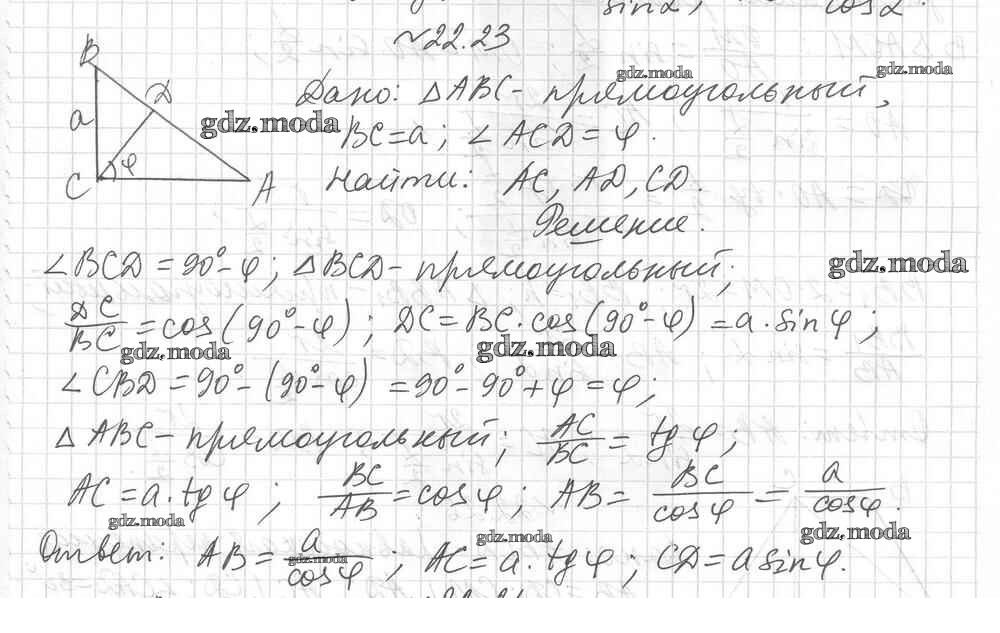 sin α ; cos α .
№22.23
Дано: △ABC - прямоугольный,
BC = a ; ∠ ACD = φ .
Найти: AC, AD, CD.
Решение.
B
D
a
φ
C
A
∠BCD = 90° - φ ; △BCD - прямоугольный;
DC/BC = cos(90° - φ) ; DC = BC · cos(90° - φ) = a · sin φ ;
∠CBD = 90° - (90° - φ) = 90° - 90° + φ = φ ;
△ABC - прямоугольный; AC/BC = tg φ ;
AC = a · tg φ ; BC/AB = cos φ ; AB = BC/cos φ = a/cos φ .
Ответ: AB = a/cos φ ; AC = a · tg φ ; CD = a sin φ.
gdz.moda
gdz.moda
gdz.moda
gdz.moda
gdz.moda
gdz.moda
gdz.moda
gdz.moda
gdz.moda
gdz.moda